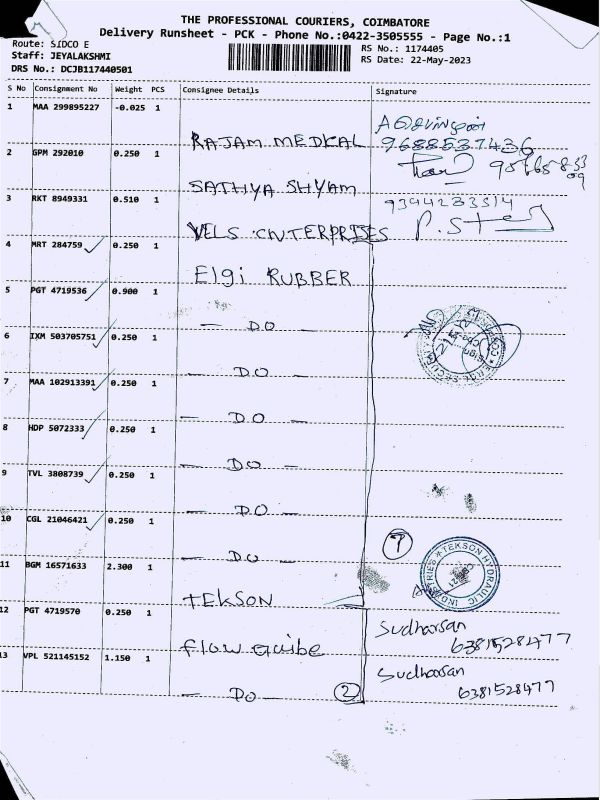 THE PROFESSIONAL COURIERS, COIMBATORE
Delivery Runsheet - PCK - Phone No.:0422-3505555 - Page No.:1
Route: SIDCO E
Staff: JEYALAKSHMI
DRS No.: DCJB117440501
RS No.: 1174405
RS Date: 22-May-2023
S No Consignment No Weight PCS Consignee Details Signature
1 MAA 299895227 -0.025 1
RAJAM MEDICAL
9688537436
2 GPM 292010 0.250 1
SATHYA SHYAM
3 RKT 8949331 0.510 1
9344233514
VELS ENTERPRISES
P.
4 MRT 284759 0.250 1
Elgi RUBBER
5 PGT 4719536 0.900 1
— DO —
6 IXM 503705751 0.250 1
— DO —
7 MAA 102913391 0.250 1
— DO —
8 HDP 5072333 0.250 1
— DO —
9 TVL 3808739 0.250 1
— DO —
10 CGL 21046421 0.250 1
— DO —
11 BGM 16571633 2.300 1
TEKSON
TEKSON HYDRAULIC INDUSTRIES
12 PGT 4719570 0.250 1
Flow Guibe
Sudharsan
6381528477
13 VPL 521145152 1.150 1
— DO — 2
Sudharsan
6381528477